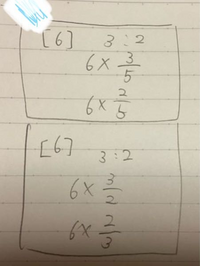 [6] 3:2
6× 3/5
6× 2/5
[6] 3:2
6× 3/2
6× 2/3